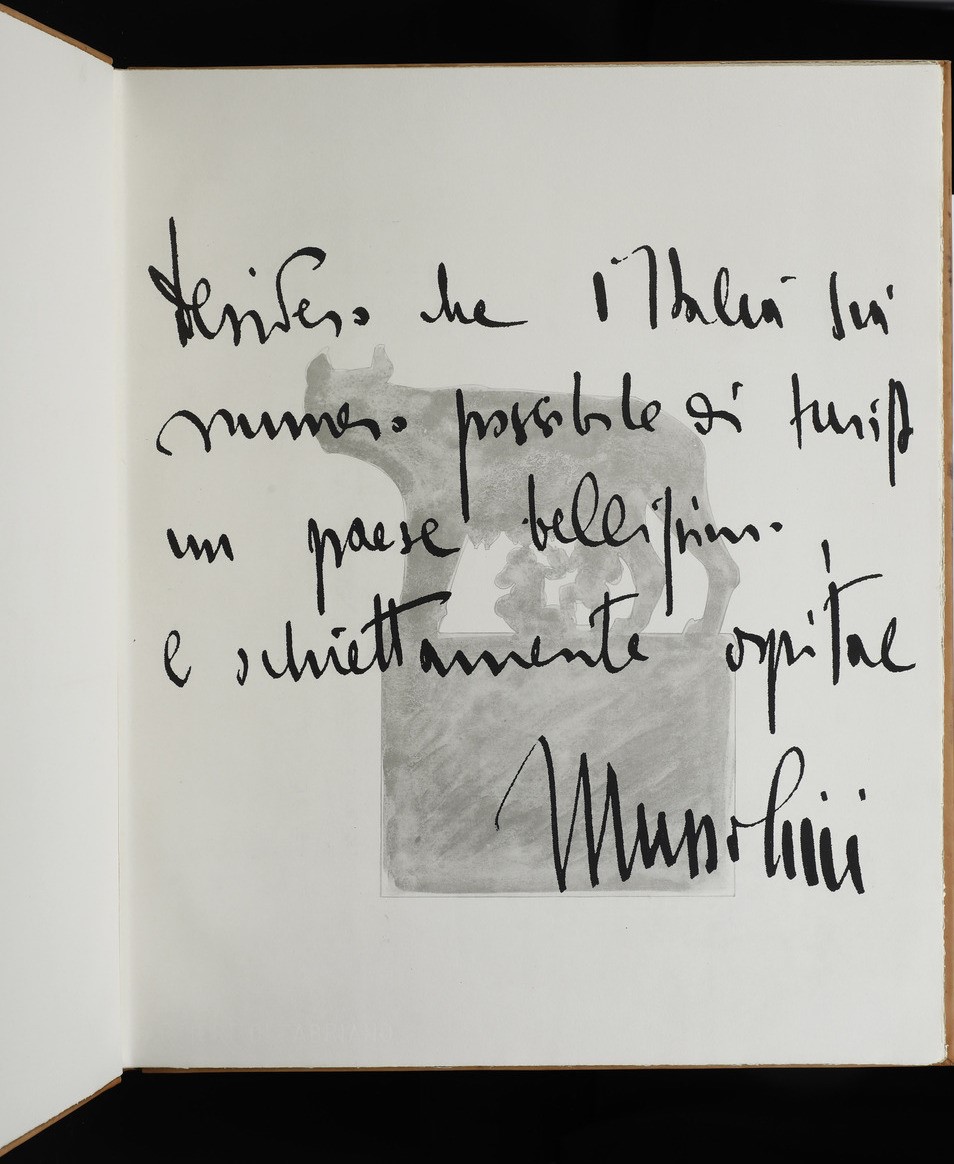 desidero che l'Italia sia
numero possibile di turist
un paese bellissimo
e schiettamente ospitale
Mussolini